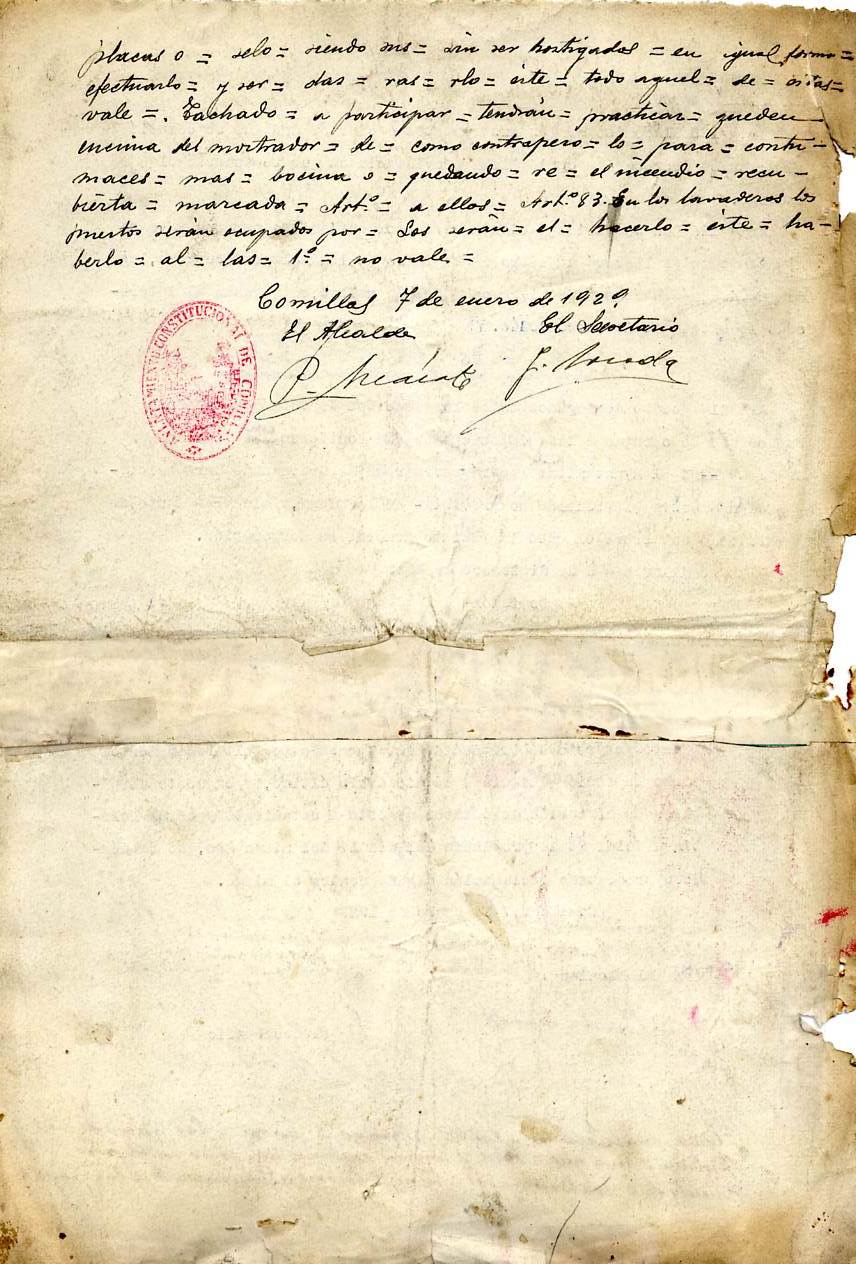 placas o = selo = siendo sus = sin ser hostigados = en igual forma =
efectuarlo = y ser = das = ras = rlo = éste = todo aquel = de = éstas =
vale =. Tachado = a participar = tendrán = practicar = queden
encima del mostrador = de = como contrapeso = lo = para = contu-
maces = mas = bocina o = quedando = re = el incendio = recu-
bierta = marcada = Art.º = a ellas = Art.º 83. En los lavaderos los
puestos serán ocupados por = Los serán = el = hacerlo = éste = ha-
berlo = al = las = 1º = no vale =
Comillas 7 de enero de 1929
El Alcalde El Secretario
AYUNTAMIENTO CONSTITUCIONAL DE COMILLAS